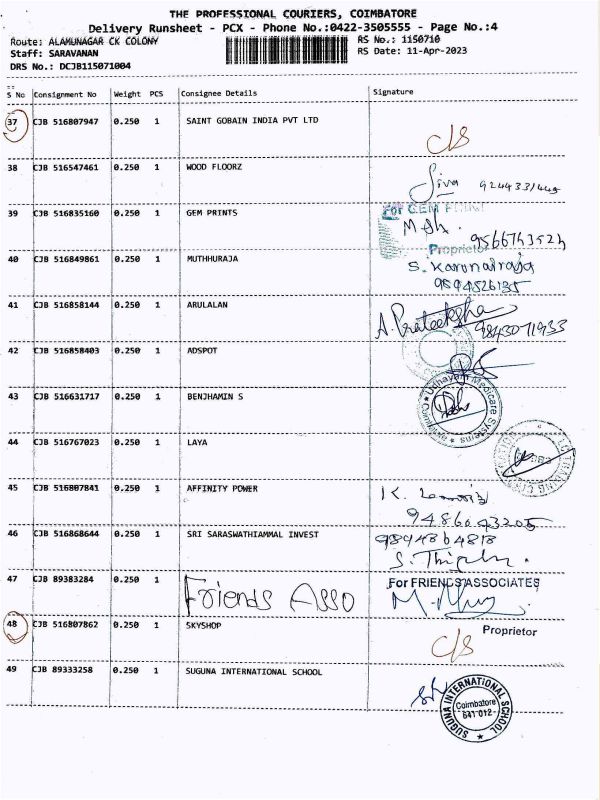 THE PROFESSIONAL COURIERS, COIMBATORE
Delivery Runsheet - PCX - Phone No.:0422-3505555 - Page No.:4
Route: ALAMUNAGAR CK COLONY
RS No.: 1150710
Staff: SARAVANAN
RS Date: 11-Apr-2023
DRS No.: DCJB115071004
S No Consignment No Weight PCS Consignee Details Signature
37 CJB 516807947 0.250 1 SAINT GOBAIN INDIA PVT LTD
C/S
38 CJB 516547461 0.250 1 WOOD FLOORZ
Siva
39 CJB 516835160 0.250 1 GEM PRINTS
For GEM PRINT
Proprietor
40 CJB 516849861 0.250 1 MUTHHURAJA
S. Karunairaja
9894526135
41 CJB 516858144 0.250 1 ARULALAN
A. Prateeksha
9843071933
42 CJB 516858403 0.250 1 ADSPOT
43 CJB 516631717 0.250 1 BENJHAMIN S
Udhayam Medicare Systems
Coimbatore
44 CJB 516767023 0.250 1 LAYA
45 CJB 516807841 0.250 1 AFFINITY POWER
K.
9486643205
46 CJB 516868644 0.250 1 SRI SARASWATHIAMMAL INVEST
9894864818
47 CJB 89383284 0.250 1
Friends Asso
For FRIENDS ASSOCIATES
48 CJB 516807862 0.250 1 SKYSHOP
Proprietor
C/S
49 CJB 89333258 0.250 1 SUGUNA INTERNATIONAL SCHOOL
SUGUNA INTERNATIONAL SCHOOL
Coimbatore
641 012